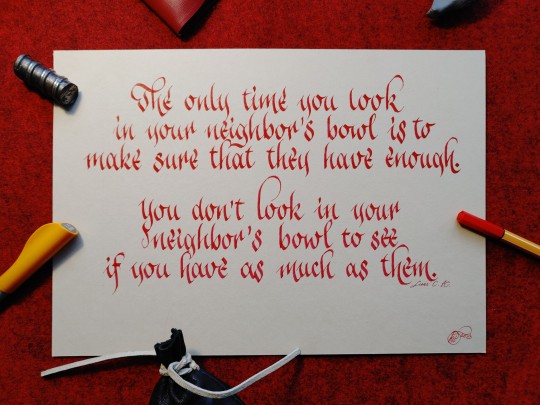 The only time you look
in your neighbor's bowl is to
make sure that they have enough.
You don't look in your
neighbor's bowl to see
if you have as much as them.
Louis C. K.